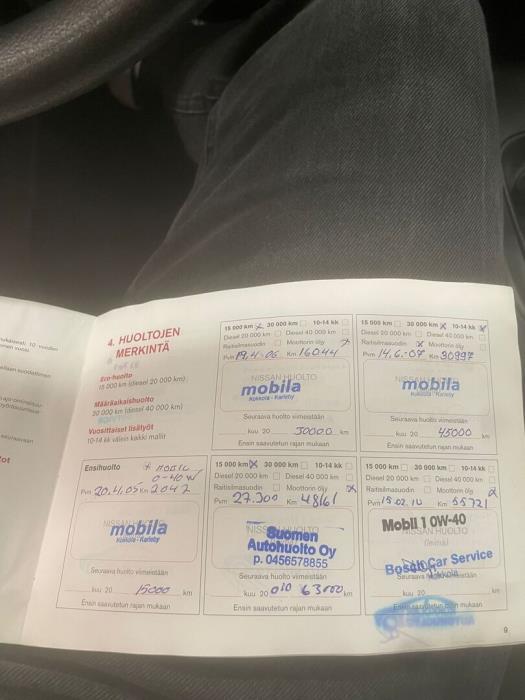 4. HUOLTOJEN
MERKINTÄ
Ero-huolto
15 000 km (diesel 20 000 km)
Määräaikaishuolto
30 000 km (diesel 40 000 km)
Vuosittaiset lisätyöt
10-14 kk välein kaikki mallit
15 000 km 30 000 km 10-14 kk
Diesel 20 000 km Diesel 40 000 km
Raitisilmasuodin Moottorin öljy
Pvm 19.4.06 Km 16044
NISSAN HUOLTO
mobila
Kokkola - Karleby
Seuraava huolto viimeistään
kuu 20 30000 km
Ensin saavutetun rajan mukaan
15 000 km 30 000 km 10-14 kk
Diesel 20 000 km Diesel 40 000 km
Raitisilmasuodin Moottorin öljy
Pvm 14.6.07 Km 30997
mobila
Kokkola - Karleby
Seuraava huolto viimeistään
kuu 20 45000 km
Ensin saavutetun rajan mukaan
Ensihuolto
0-40W
Pvm 20.4.05 Km 2042
mobila
Kokkola - Karleby
Seuraava huolto viimeistään
kuu 20 15000 km
Ensin saavutetun rajan mukaan
15 000 km 30 000 km 10-14 kk
Diesel 20 000 km Diesel 40 000 km
Raitisilmasuodin Moottorin öljy
Pvm Km 48161
Suomen
Autohuolto Oy
p. 0456578855
Seuraava huolto viimeistään
kuu 20 010 63000 km
Ensin saavutetun rajan mukaan
15 000 km 30 000 km 10-14 kk
Diesel 20 000 km Diesel 40 000 km
Raitisilmasuodin Moottorin öljy
Pvm 15.02.10 Km 55721
Mobil 1 0W-40
NISSAN HUOLTO
Bosch Car Service
kuu 20 km
Ensin saavutetun rajan mukaan
9